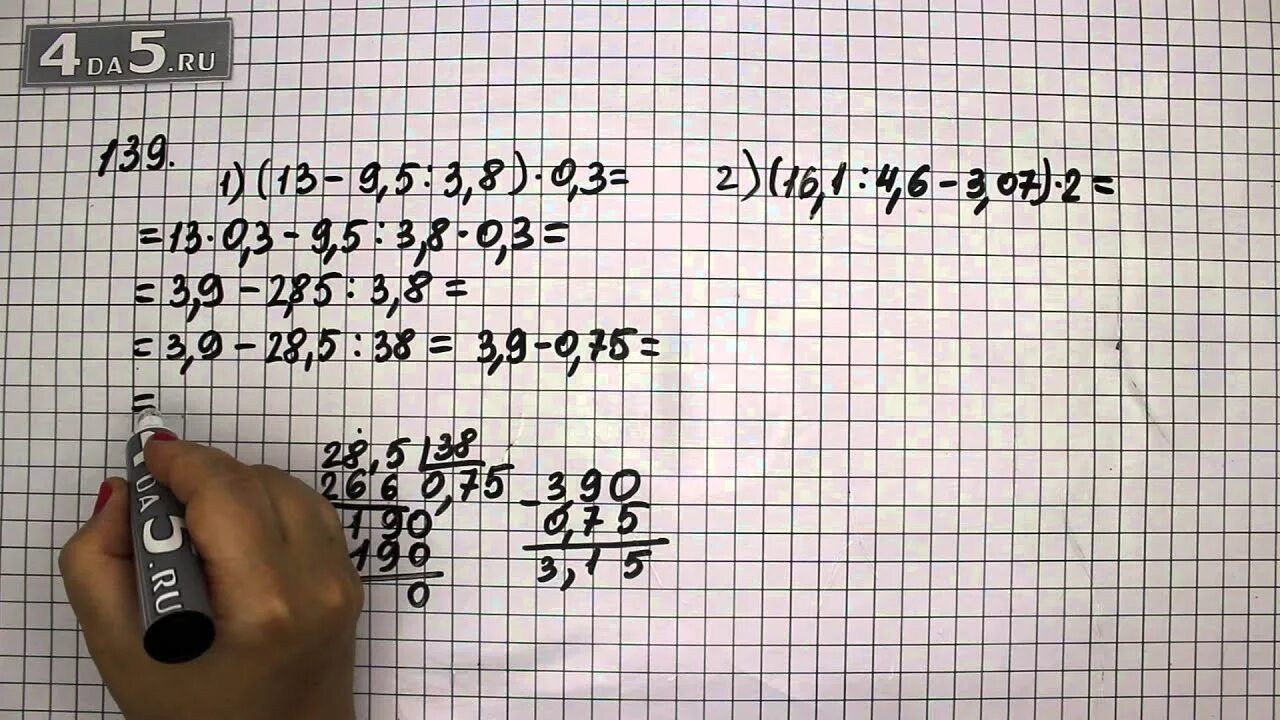 4DA5.RU
139.
1) (13 - 9,5 : 3,8) · 0,3 =
= 13 · 0,3 - 9,5 : 3,8 · 0,3 =
= 3,9 - 2,85 : 3,8 =
= 3,9 - 28,5 : 38 = 3,9 - 0,75 =
=
28,5 | 38
266 0,75
190
190
0
- 3,90
0,75
3,15
2) (16,1 : 4,6 - 3,07) · 2 =
5.RU